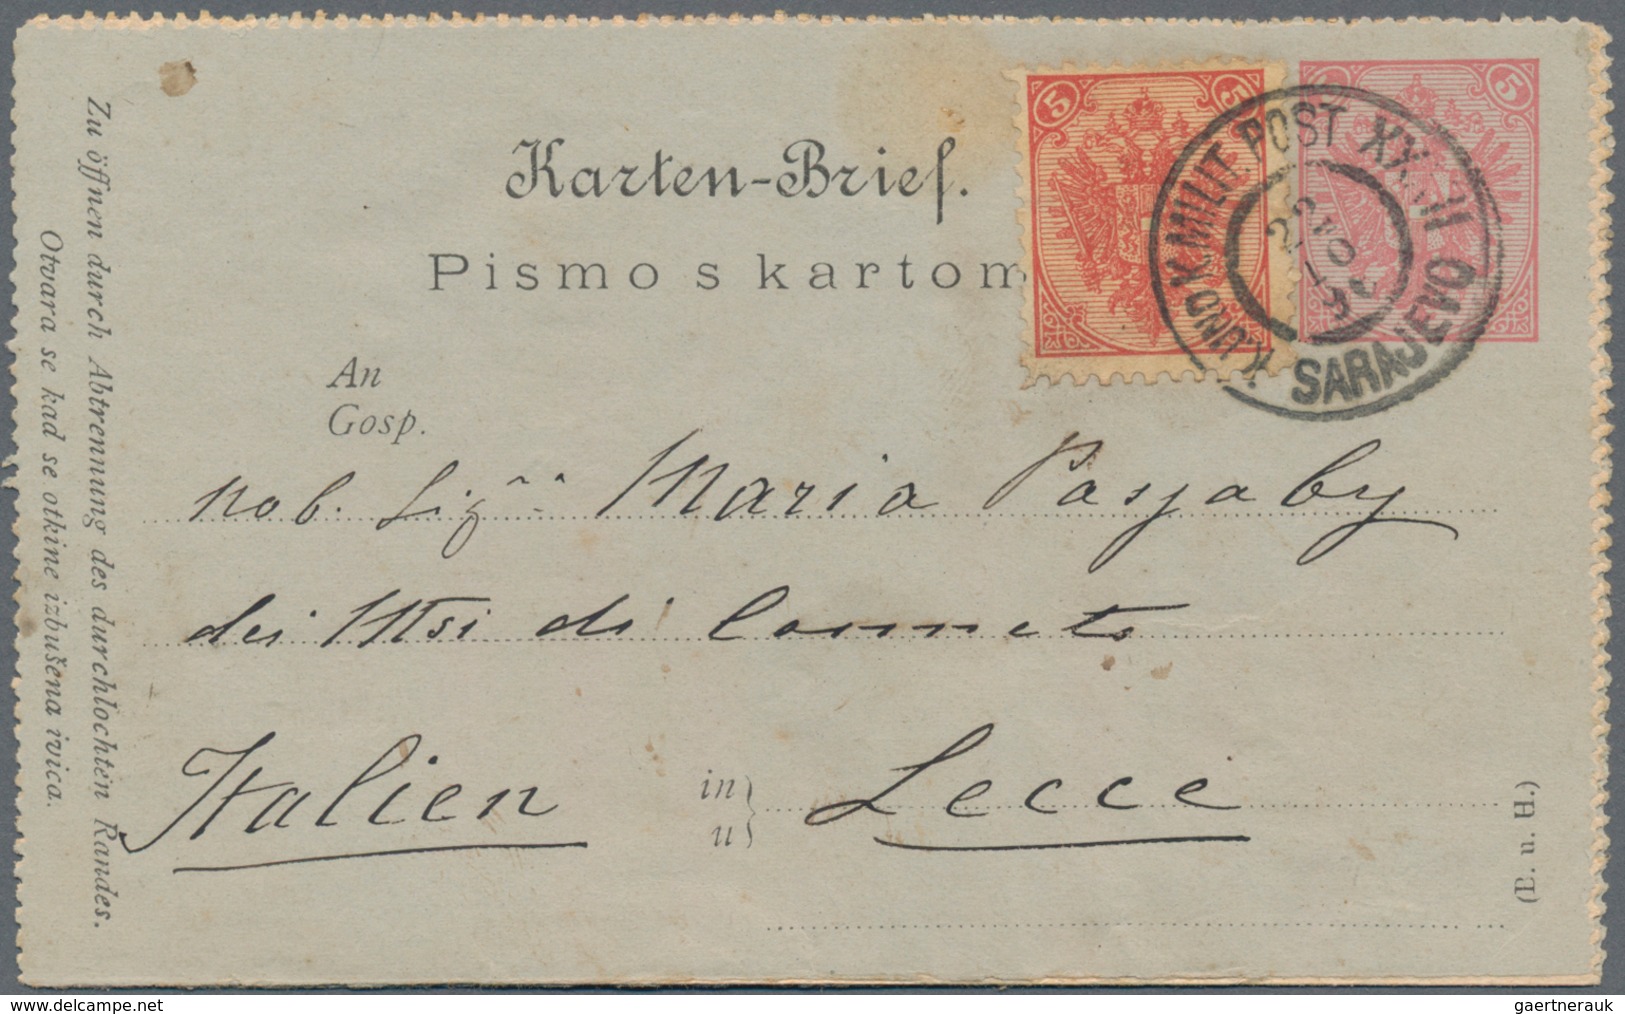 Karten-Brief.
Pismo s kartom
5 5
5
K. UND K. MILIT. POST XXXVII
SARAJEVO
An
Gosp.
nob. Sig.ra Maria
dei di
Italien
in
u
Lecce
Zu öffnen durch Abtrennung des durchlochten Randes.
Otvara se kad se otkine izbušena ivica.
(B. u. H.)
delcampe.net
gaertnerauk